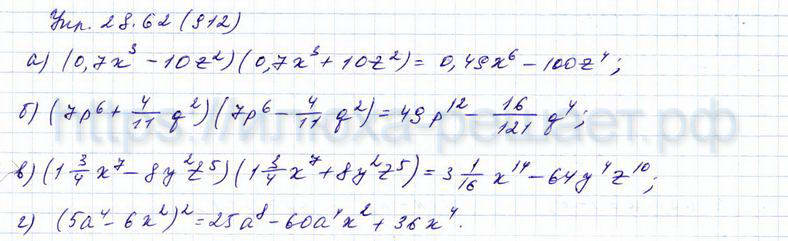 Упр. 28.62 (912)
а) (0,7x³ – 10z²)(0,7x³ + 10z²) = 0,49x⁶ – 100z⁴;
б) (7p⁶ + 4/11 q²)(7p⁶ – 4/11 q²) = 49p¹² – 16/121 q⁴;
в) (1 3/4 x⁷ – 8y²z⁵)(1 3/4 x⁷ + 8y²z⁵) = 3 1/16 x¹⁴ – 64y⁴z¹⁰;
г) (5a⁴ – 6x²)² = 25a⁸ – 60a⁴x² + 36x⁴.